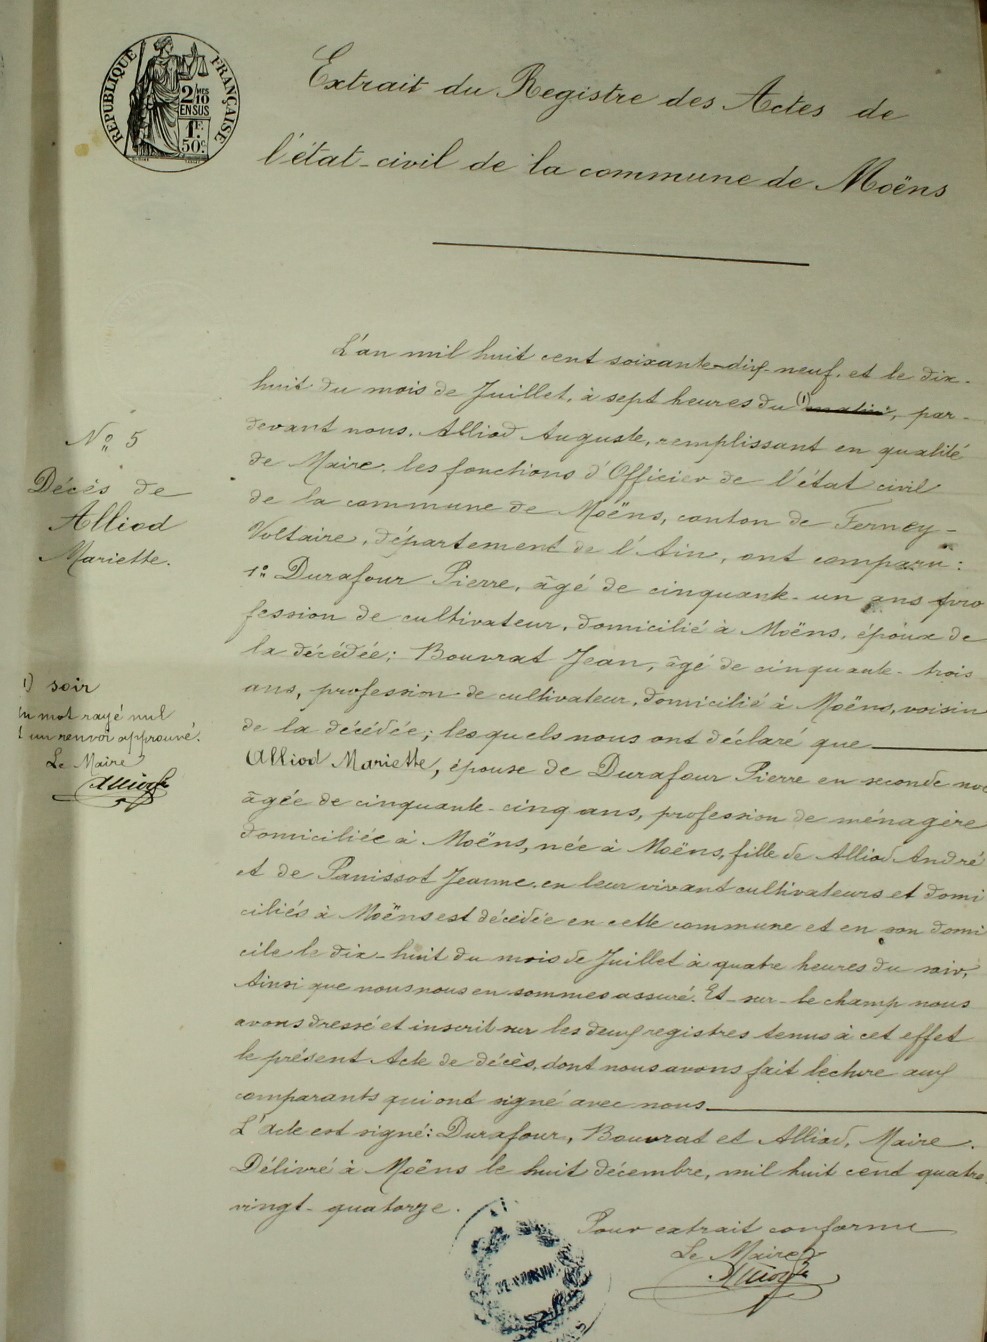 RÉPUBLIQUE FRANÇAISE
2/10 MES
EN SUS
1F.
50c.
Extrait du Registre des Actes de
l'état-civil de la commune de Moëns
L'an mil huit cent soixante-dix-neuf, et le dix-
huit du mois de Juillet, à sept heures du (1) matin, par-
devant nous, Alliod Auguste, remplissant en qualité
de Maire, les fonctions d'Officier de l'état civil
de la commune de Moëns, canton de Ferney-
Voltaire, département de l'Ain, ont comparu:
1º Durafour Pierre, âgé de cinquante-un ans pro
fession de cultivateur, domicilié à Moëns, époux de
la décédée; Bouvrat Jean, âgé de cinquante-trois
ans, profession de cultivateur, domicilié à Moëns, voisin
de la décédée; lesquels nous ont déclaré que
Alliod Mariette, épouse de Durafour Pierre en seconde noc
âgée de cinquante-cinq ans, profession de ménagère
domiciliée à Moëns, née à Moëns, fille de Alliod André
et de Panissot Jeanne, en leur vivant cultivateurs et domi
ciliés à Moëns est décédée en cette commune et en son domi
cile le dix-huit du mois de Juillet à quatre heures du soir,
Ainsi que nous nous en sommes assuré. Et-sur-le champ nous
avons dressé et inscrit sur les deux registres tenus à cet effet
le présent Acte de décès, dont nous avons fait lecture aux
comparants qui ont signé avec nous
L'acte est signé: Durafour, Bouvrat et Alliod, Maire.
Délivré à Moëns le huit décembre, mil huit cent quatre
vingt-quatorze.
Pour extrait conforme
Le Maire
Alliod
Nº 5
Décès de
Alliod
Mariette.
1) soir
un mot rayé nul
& un renvoi approuvé.
Le Maire
Alliod